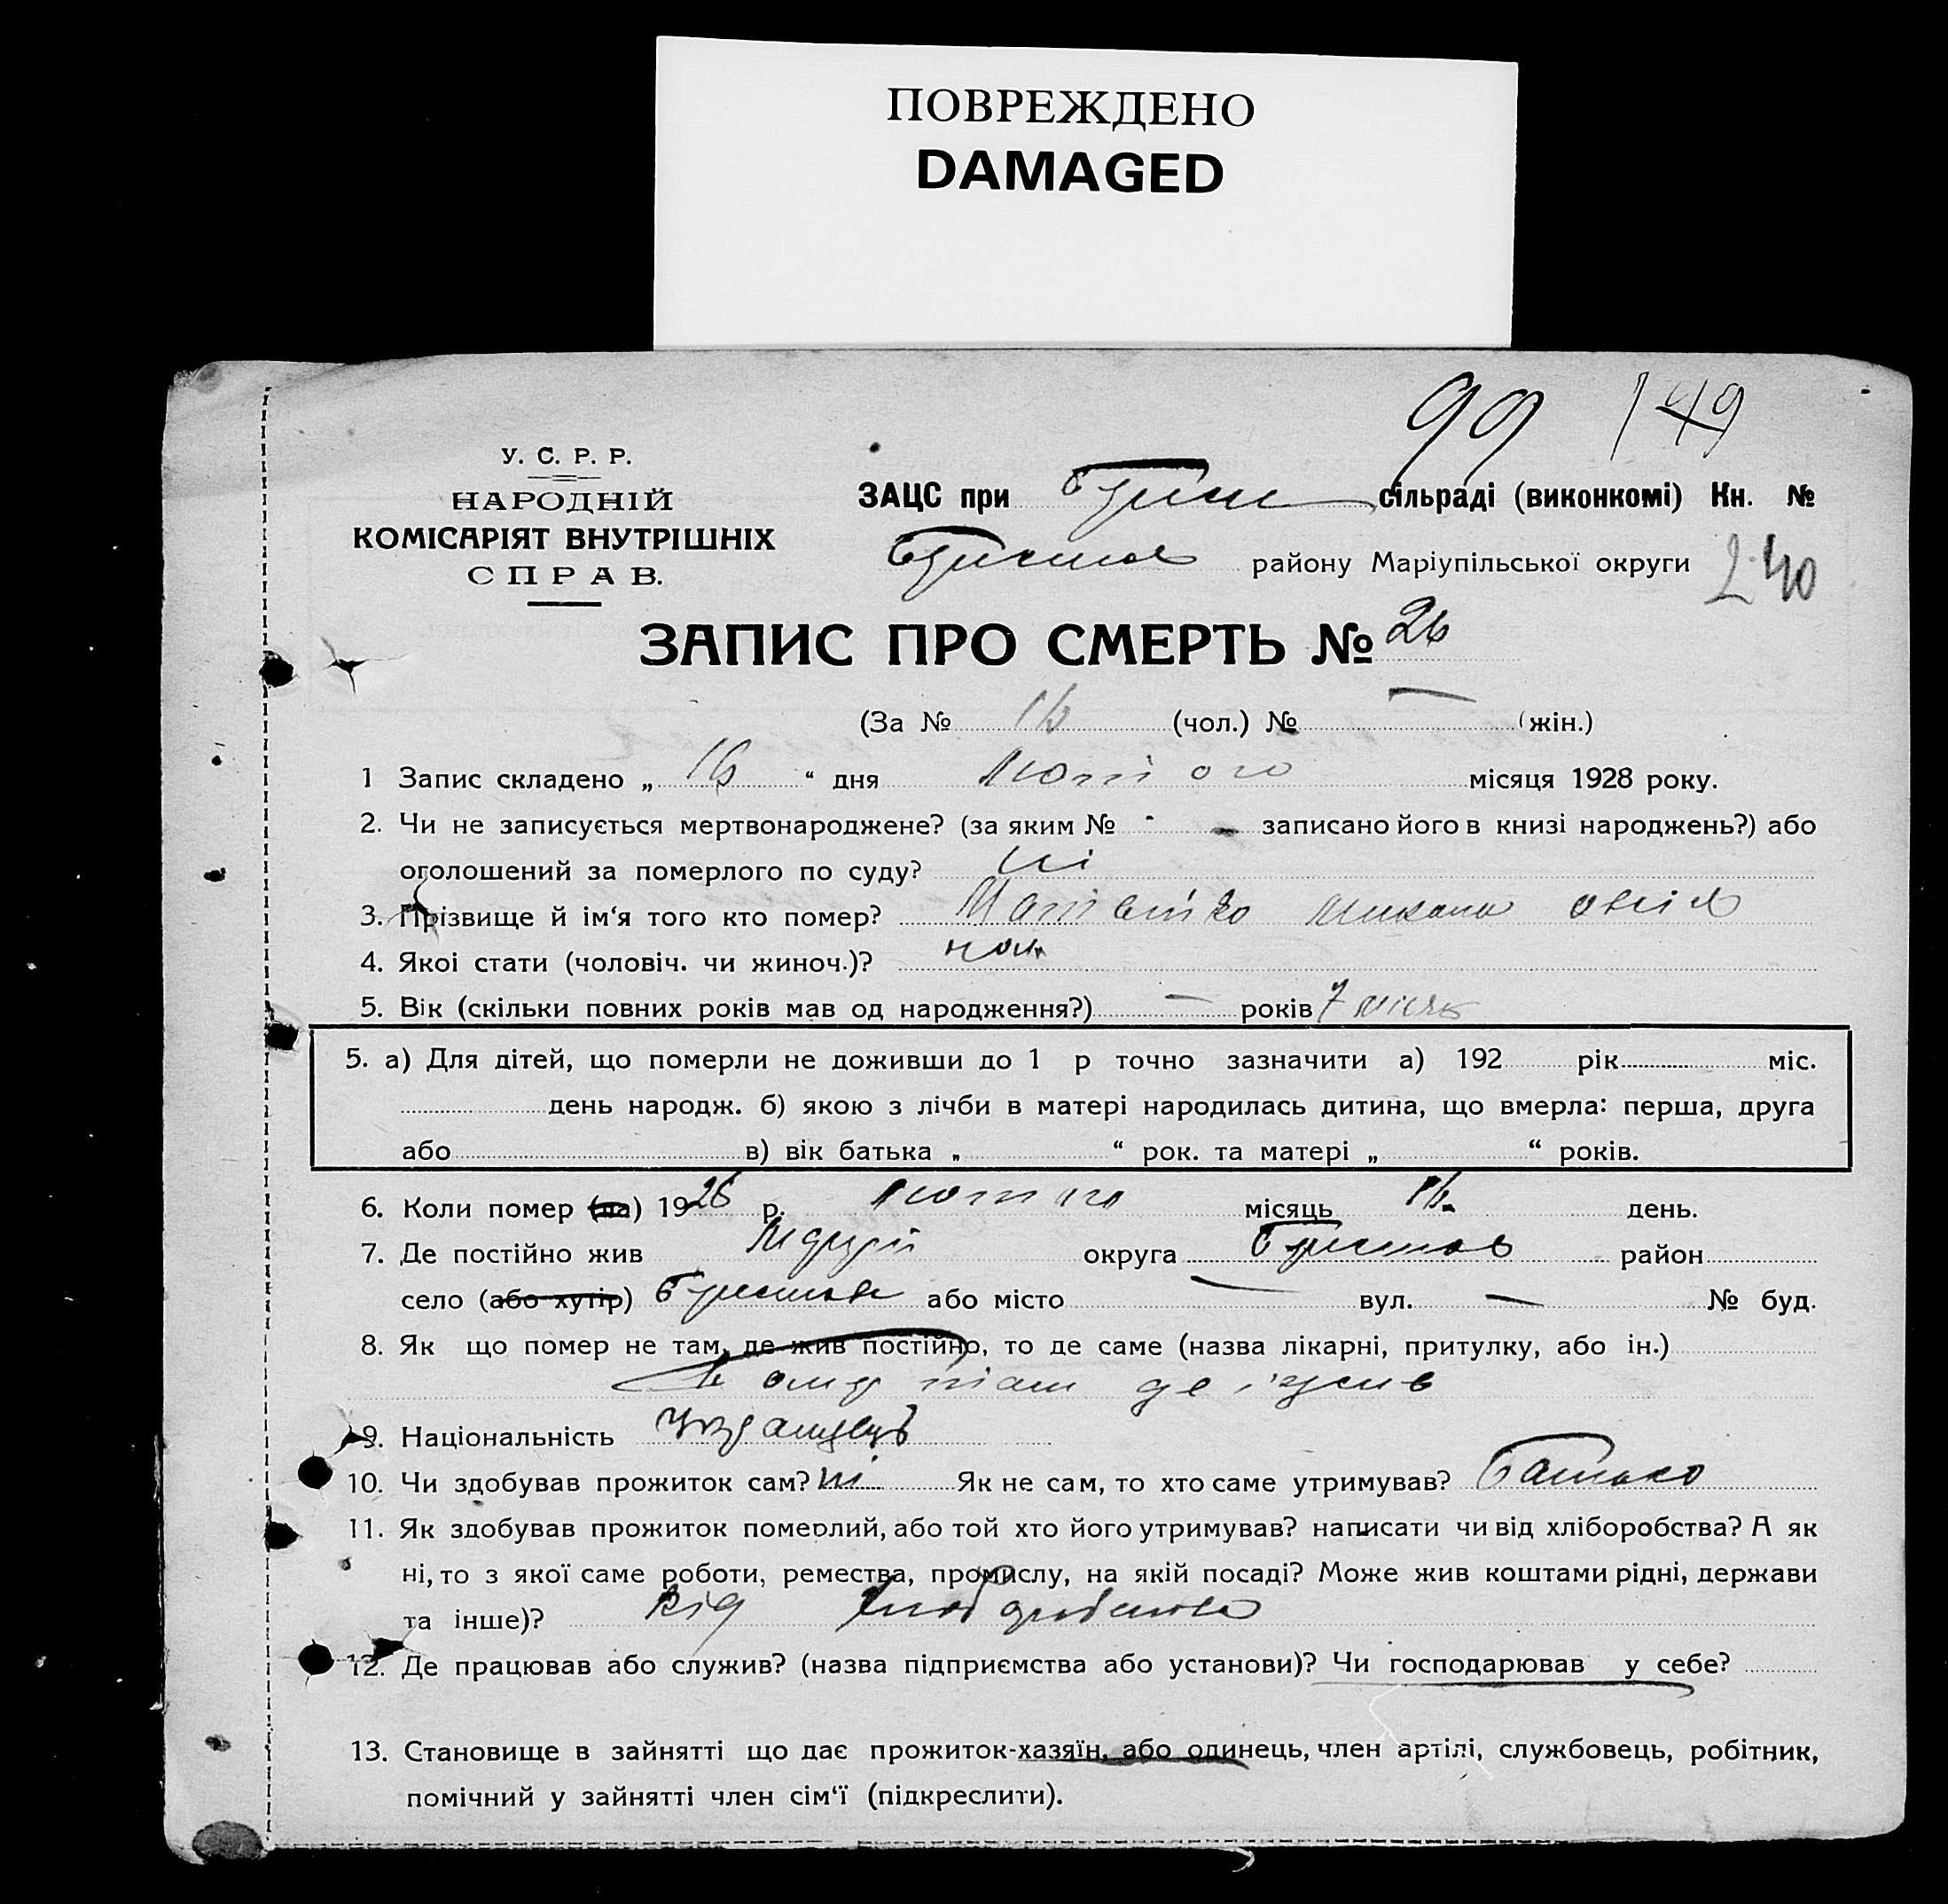 ПОВРЕЖДЕНО
DAMAGED
99 149
У. С. Р. Р.
НАРОДНІЙ
КОМІСАРІЯТ ВНУТРІШНІХ
СПРАВ.
ЗАЦС при сільраді (виконкомі) Кн. №
району Маріупільської округи 240
ЗАПИС ПРО СМЕРТЬ № 26
(За № 16 (чол.) № — (жін.)
1 Запис складено „ 16 “ дня Лютого місяця 1928 року.
2. Чи не записується мертвонароджене? (за яким № - записано його в книзі народжень?) або
оголошений за померлого по суду? ні
3. Прізвище й ім‘я того кто помер?
4. Якоі стати (чоловіч. чи жиноч.)? чол.
5. Вік (скільки повних років мав од народження?) — років 7 місяц
5. а) Для дітей, що померли не доживши до 1 р точно зазначити а) 192 рік міс.
день народж. б) якою з лічби в матері народилась дитина, що вмерла: перша, друга
або в) вік батька „ “ рок. та матері „ “ років.
6. Коли помер (ла) 1928 р. лютого місяць 16 день.
7. Де постійно жив округа район
село (або хутір) або місто — вул. — № буд.
8. Як що помер не там, де жив постійно, то де саме (назва лікарні, притулку, або ін.)
там де і жив
9. Національність украинець
10. Чи здобував прожиток сам? ні Як не сам, то хто саме утримував? Батько
11. Як здобував прожиток померлий, або той хто його утримував? написати чи від хліборобства? А як
ні, то з якої саме роботи, ремества, промислу, на якій посаді? Може жив коштами рідні, держави
та інше)? Від хлоборобства
12. Де працював або служив? (назва підприємства або установи)? Чи господарював у себе?
13. Становище в зайнятті що дає прожиток-хазяїн, або одинець, член артілі, службовець, робітник,
помічний у зайнятті член сім‘ї (підкреслити).